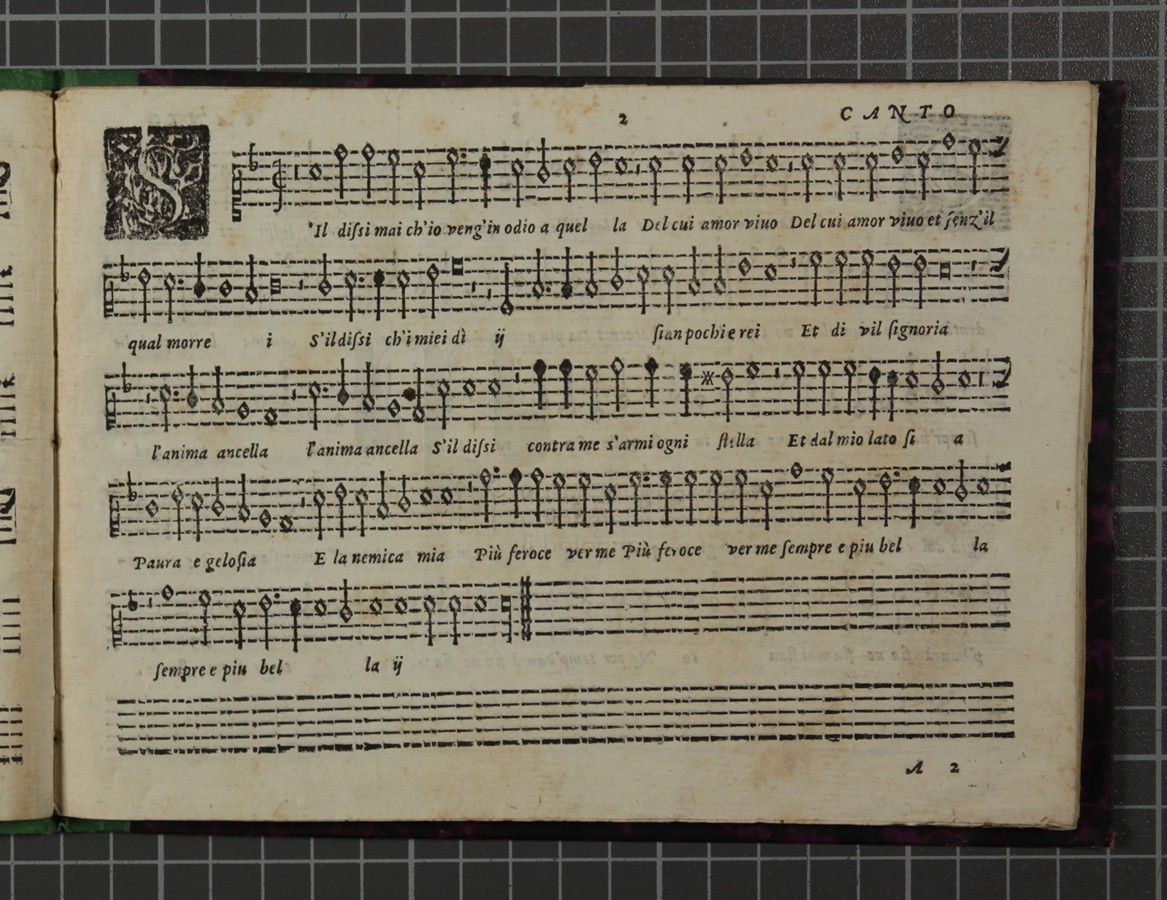 2 CANTO
S'Il dissi mai ch'io veng'in odio a quel la Del cui amor viuo Del cui amor viuo et senz'il
qual morre i S'il dissi ch'i miei dì ij sian pochi e rei Et di vil signoria
l'anima ancella l'anima ancella S'il dissi contra me s'armi ogni stella Et dal mio lato si a
Paura e gelosia E la nemica mia Più feroce ver me Più feroce ver me sempre e piu bel la
sempre e piu bel la ij
A 2